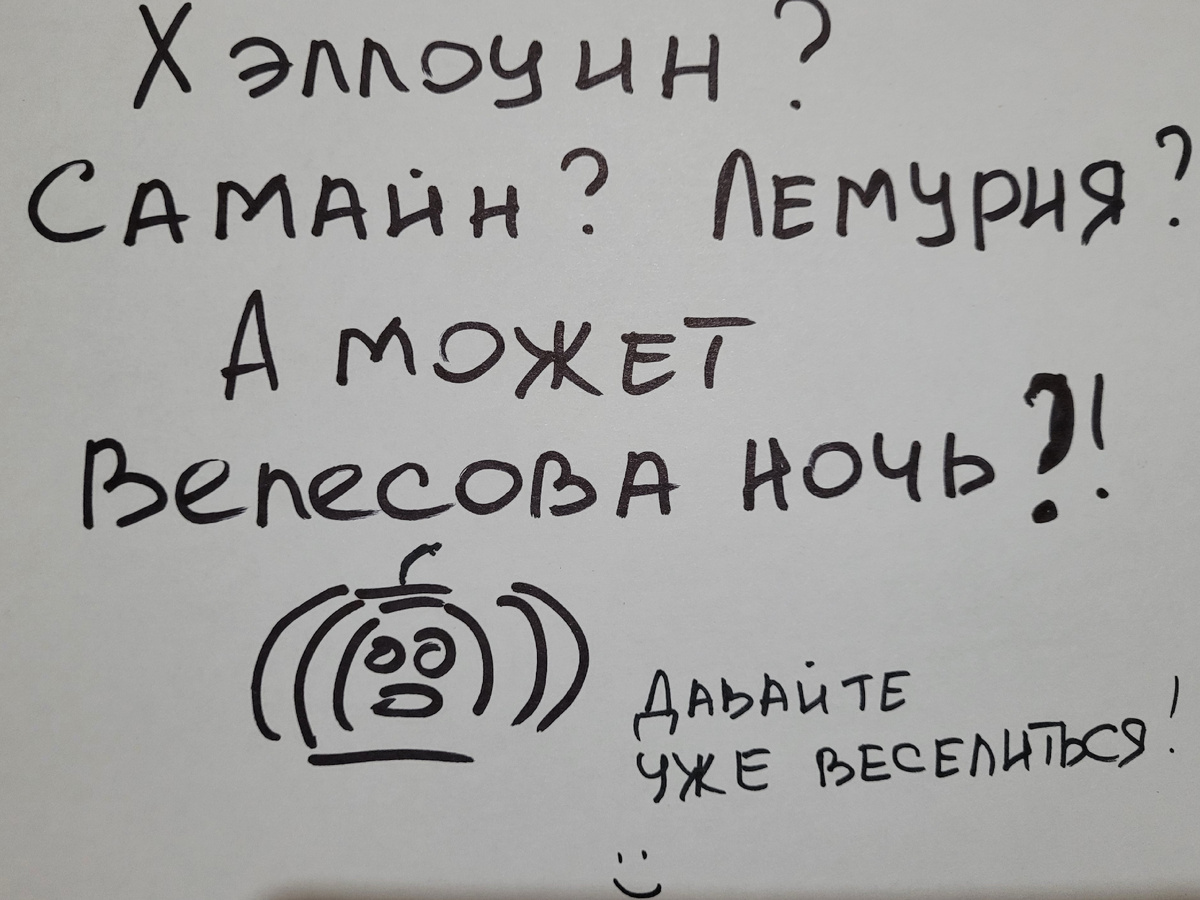 Хэллоуин?
Самайн? Лемурия?
А может
Велесова ночь?!
Давайте
уже веселиться!